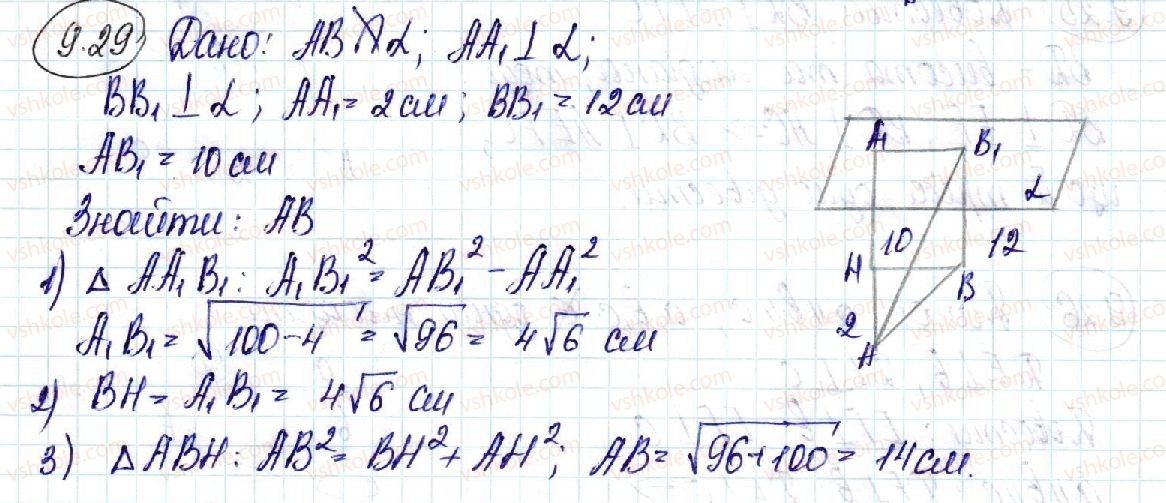 9.29 Дано: AB ∦ α; AA₁ ⊥ α;
BB₁ ⊥ α; AA₁ = 2 см; BB₁ = 12 см
AB₁ = 10 см
Знайти: AB
1) Δ AA₁B₁: A₁B₁² = AB₁² − AA₁²
A₁B₁ = √(100−4) = √96 = 4√6 см
2) BH = A₁B₁ = 4√6 см
3) Δ ABH: AB² = BH² + AH²; AB = √(96+100) = 14 см.
A₁ B₁
α
10 12
H B
2
A
vshkole.com